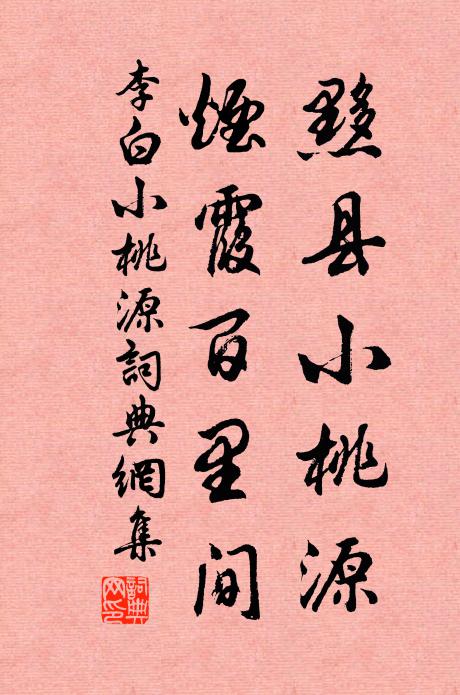 黟县小桃源
煙霞百里间
李白小桃源詞典網集
詞典网印